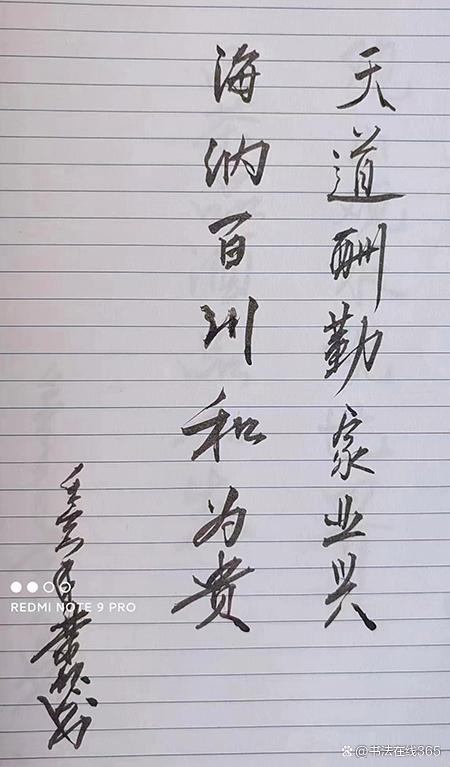 天道酬勤家业兴
海纳百川和为贵
REDMI NOTE 9 PRO
@书法在线365